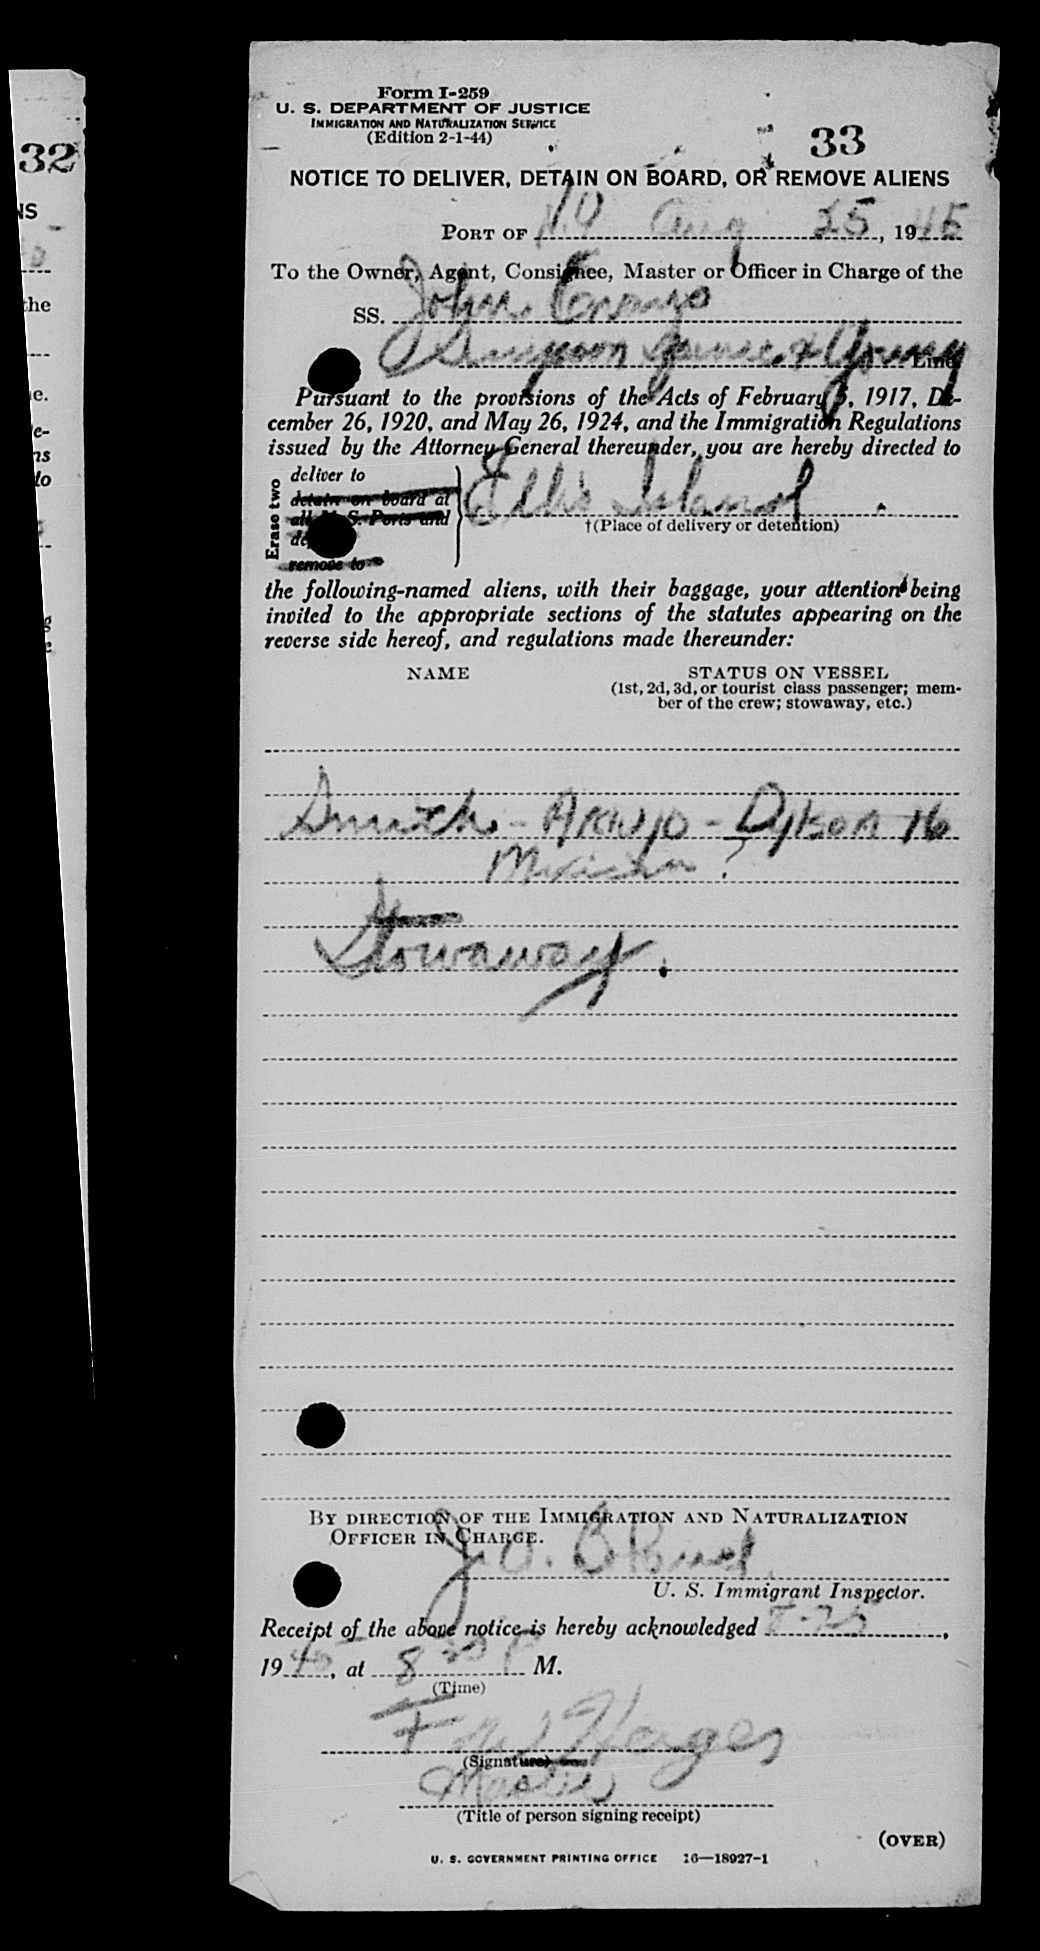 32
Form I-259
U. S. DEPARTMENT OF JUSTICE
IMMIGRATION AND NATURALIZATION SERVICE
(Edition 2-1-44)
33
NOTICE TO DELIVER, DETAIN ON BOARD, OR REMOVE ALIENS
PORT OF N.Y Aug 25, 1945
To the Owner, Agent, Consignee, Master or Officer in Charge of the
SS. John
& Young Line
Pursuant to the provisions of the Acts of February 5, 1917, De-
cember 26, 1920, and May 26, 1924, and the Immigration Regulations
issued by the Attorney General thereunder, you are hereby directed to
Erase two
deliver to
detain on board at
all U. S. Ports and
remove to
Ellis Island.
†(Place of delivery or detention)
the following-named aliens, with their baggage, your attention being
invited to the appropriate sections of the statutes appearing on the
reverse side hereof, and regulations made thereunder:
NAME STATUS ON VESSEL
(1st, 2d, 3d, or tourist class passenger; mem-
ber of the crew; stowaway, etc.)
Smith - Araujo - Dyson 16
Mexican ?
Stowaway.
BY DIRECTION OF THE IMMIGRATION AND NATURALIZATION
OFFICER IN CHARGE.
J. O.
U. S. Immigrant Inspector.
Receipt of the above notice is hereby acknowledged 8-25,
1945, at 8 P M.
(Time)
(Signature)
Master
(Title of person signing receipt)
(OVER)
U. S. GOVERNMENT PRINTING OFFICE 16—18927-1